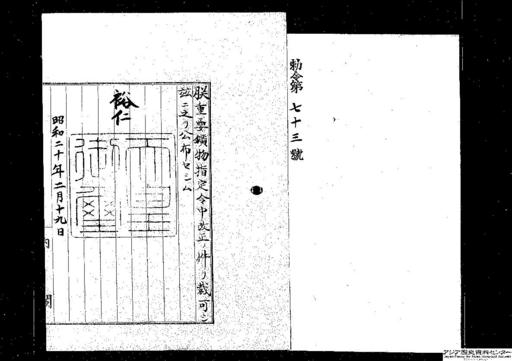 勅令第七十三號
朕重要鑛物指定令中改正ノ件ヲ裁可シ
茲ニ之ヲ公布セシム
裕仁
天皇御璽
昭和二十年二月十九日
内閣
アジア歴史資料センター